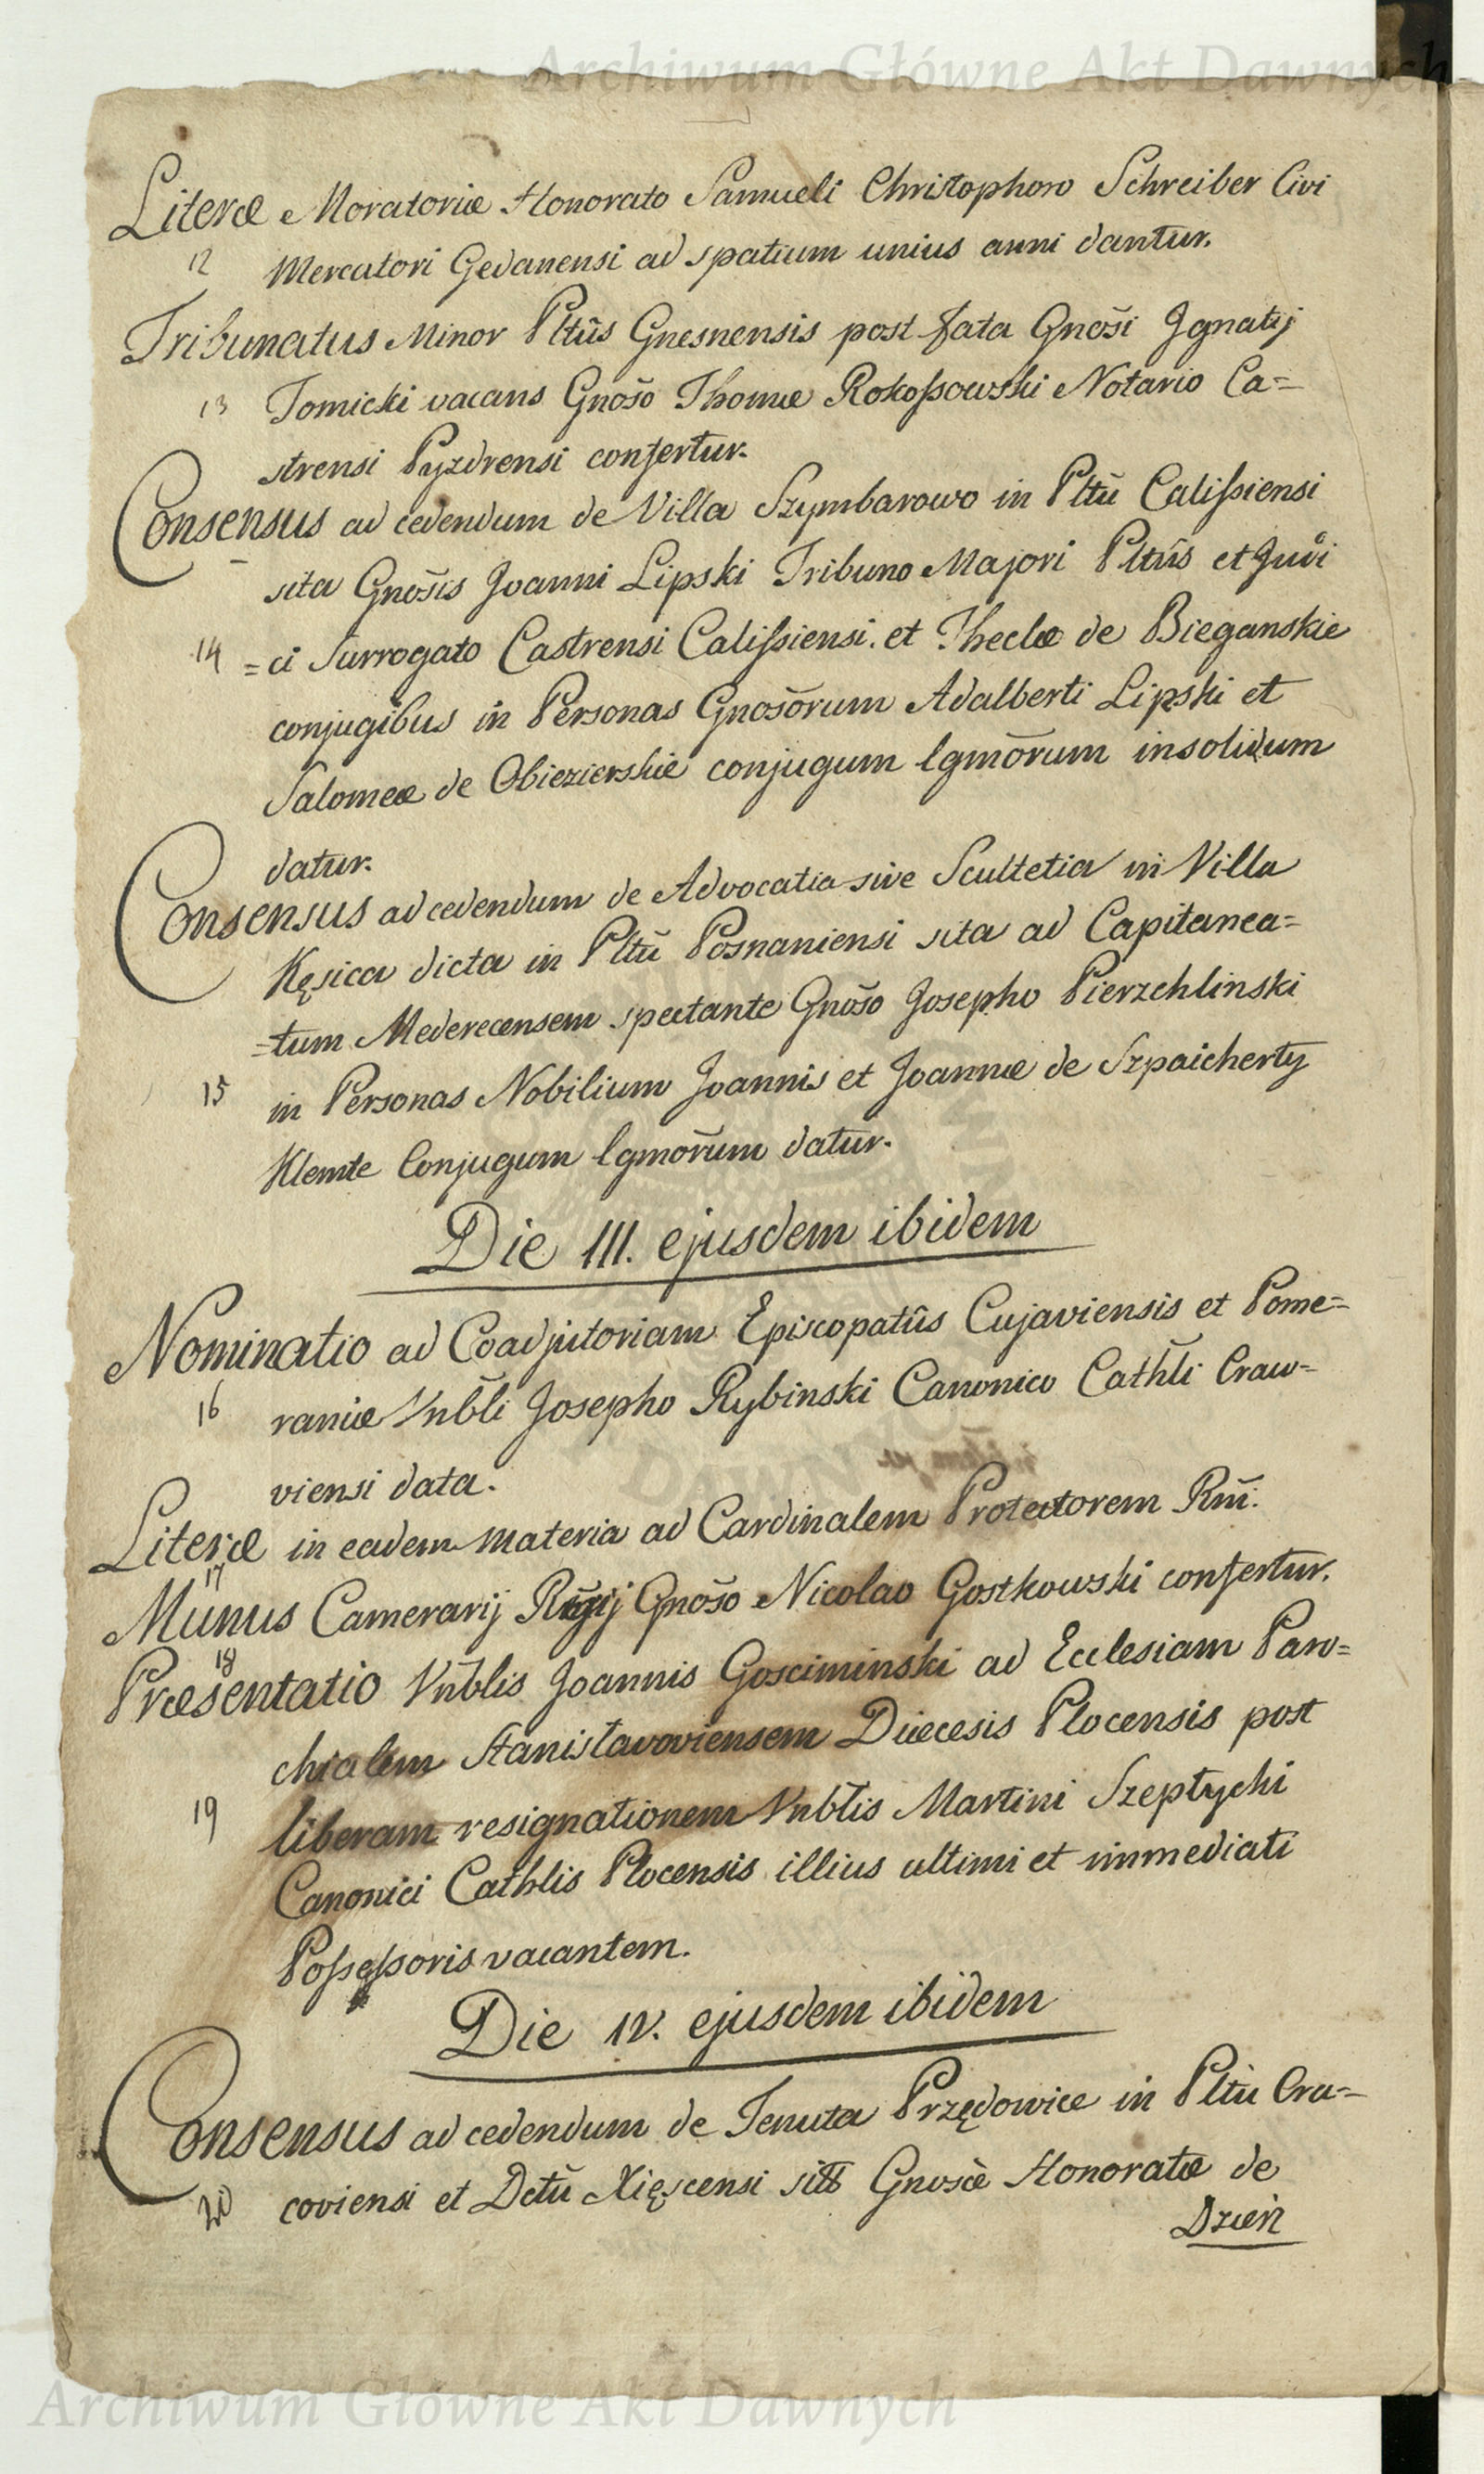 Archiwum Główne Akt Dawnych
Literæ Moratoriæ Honorato Samueli Christophoro Schreiber Civi
12 Mercatori Gedanensi ad spatium unius anni dantur.
Tribunatus Minor Pltûs Gnesnensis post fata Gnōsi Jgnatij
13 Tomicki vacans Gnōso Thomæ Rokoſsowski Notario Ca=
strensi Pyzdrensi confertur.
Consensus ad cedendum de Villa Szymbarowo in Pltū Caliſsiensi
sita Gnōsis Joanni Lipski Tribuno Majori Pltûs et Judi
14 =ci Surrogato Castrensi Caliſsiensi. et Theclæ de Bieganskie
conjugibus in Personas Gnosōrum Adalberti Lipski et
Salomeæ de Obiezierskie conjugum lgmōrum insolidum
datur.
Consensus ad cedendum de Advocatia sive Scultetia in Villa
Kęsica dicta in Pltū Posnaniensi sita ad Capitanea=
=tum Mederecensem spectante Gnōso Josepho Pierzchlinski
15 in Personas Nobilium Joannis et Joannæ de Szpaicherty
Klemte Conjugum lgmōrum datur.
Die III. ejusdem ibidem
Nominatio ad Coadjutoriam Episcopatûs Cujaviensis et Pome=
16 raniæ Vnbli Josepho Rybinski Canonico Cathli Craco=
viensi data.
Literæ in eadem materia ad Cardinalem Protectorem Rm̄i.
17
Munus Camerarij Regij Gnōso Nicolao Gostkowski confertur.
18
Præsentatio Vnblis Joannis Gosciminski ad Ecclesiam Paro=
chialem Stanisławoviensem Diæcesis Plocensis post
19 liberam resignationem Vnblis Martini Szeptychi
Canonici Cathlis Plocensis illius ultimi et immediati
Poſseſsoris vacantem.
Die IV. ejusdem ibidem
Consensus ad cedendum de Tenuta Przędowice in Pltū Cra=
20 coviensi et Dctū Xięscensi Gnosæ Honoratæ de
Dzień
Archiwum Główne Akt Dawnych